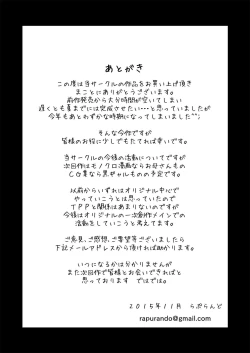 あとがき
この度は当サークルの作品をお買い上げ頂き
まことにありがとうございます。
前作発売から大分時間が空いてしまい
遅くとも夏までには完成させたい…と思っていましたが
今年もあとわずかな時期になってしまいました^^;
そんな今作ですが
皆様のお役に少しでもたてれば幸いです。
当サークルの今後の活動についてですが
次回作はモノクロ漫画ならお母さんもの
CG集なら黒ギャルものの予定です。
以前からいずれはオリジナル中心で
やっていこうとは思っていたので
TPPと関係はあまりないのですが
今後はオリジナルの一次創作メインでの
活動をしていこうと考えています。
ご意見、ご感想、ご要望等ございましたら
下記メールアドレスから頂ければ助かります。
いつになるかは分かりませんが
また次回作で皆様とお会いできればと
思っております ではでは。
2015年11月 らぷらんど
rapurando@gmail.com